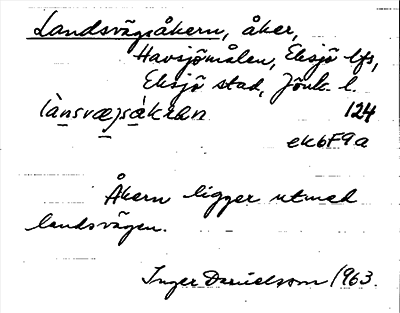 Landsvägsåkern, åker,
Havsjömålen, Eksjö lfs,
Eksjö stad, Jönk. l.
124
ek6F9a
Åkern ligger utmed
landsvägen.
Inger Danielsson 1963.